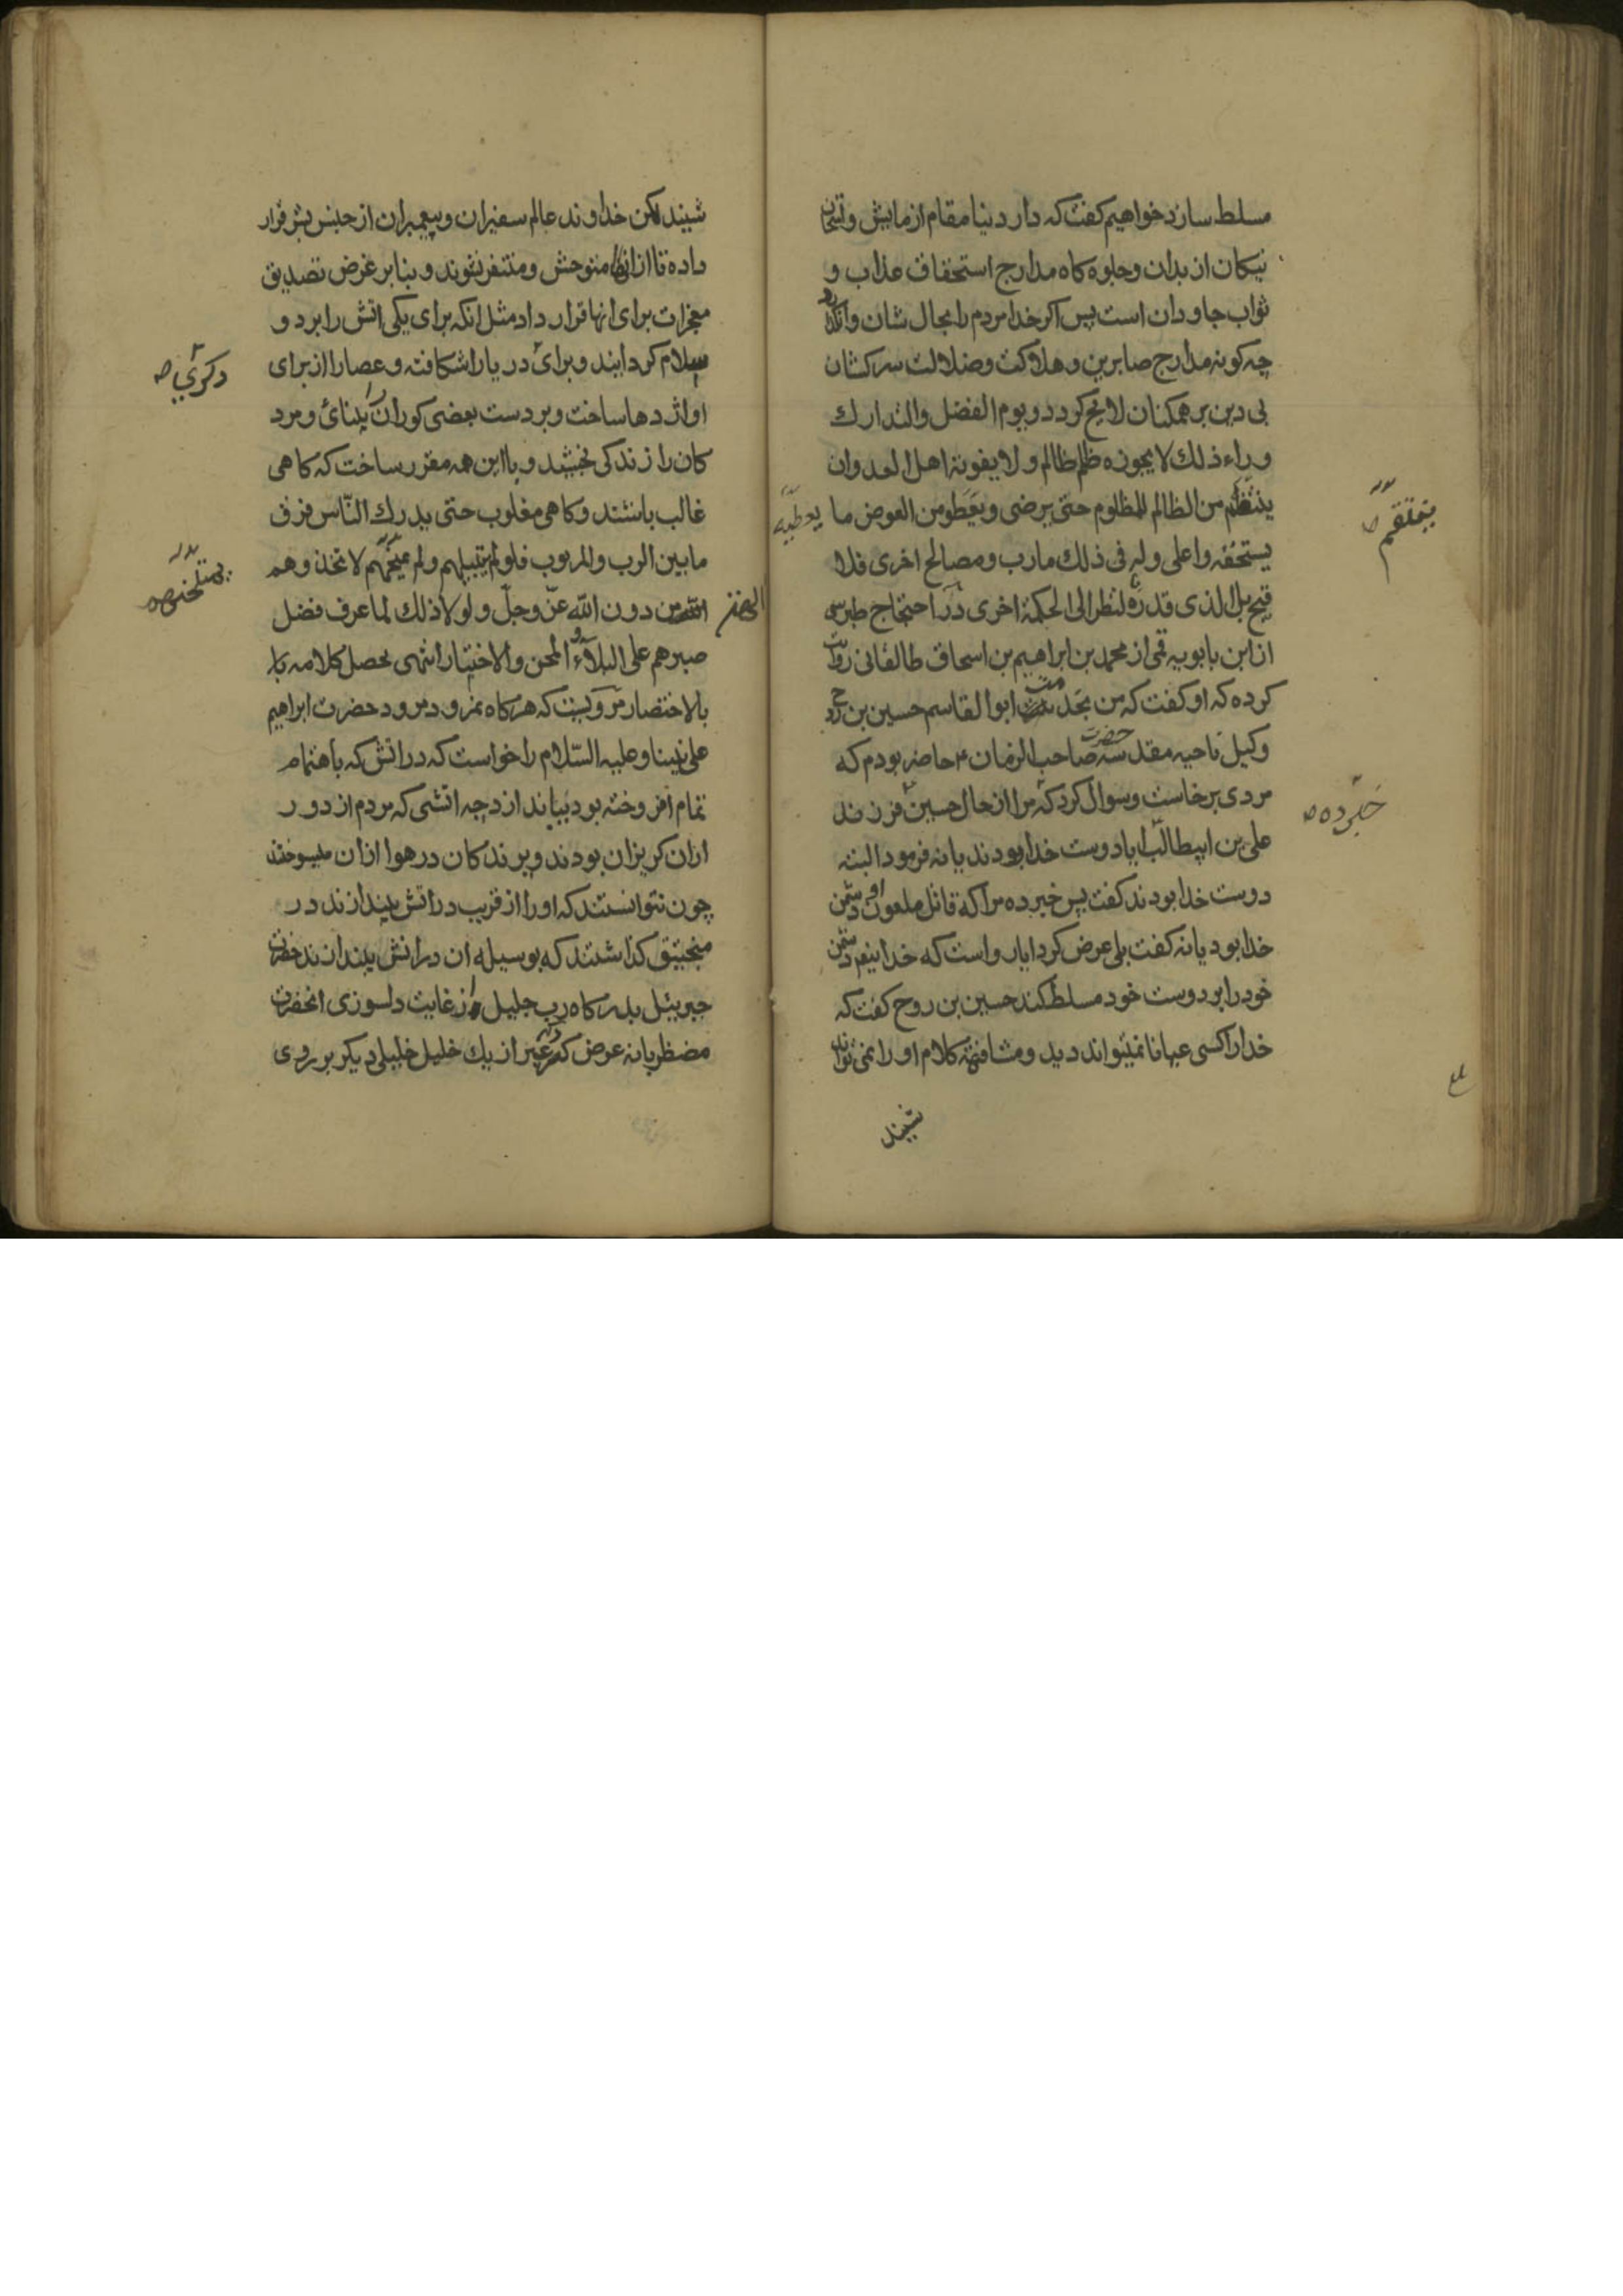 مسلط سازد خواهیم کفت که دار دنیا مقام ازمایش و
نیکان از بدان و جلوه کاه مدارج استحقاق عذاب و
ثواب جاودان است پس اکر خدا مردم را بحال شان وا
چه کونه مدارج صابرین و هلاکت و ضلالت سرکشان
بی دین بر همکنان لایح کردد و یوم الفضل والتدارك
وراء ذلك لا یجوزه ظلم ظالم ولا یفوته اهل العدوان
ینتقم من الظالم للمظلوم حتی یرضی و من العوض ما
یعطیه
ینتقم ص
یستحقه واعلی وله فی ذلك مارب ومصالح اخری فلا
قبح بل الذی قدره لنظر الی الحکمة اخری در احتجاج طبرسی
از ابن بابویه قمی از محمد بن ابراهیم بن اسحاق طالقانی روایت
کرده که او کفت که من بخدمت ابو القاسم حسین بن روح
وکیل ناحیه مقدسه حضرت صاحب الزمان ع حاضر بودم که
مردی برخاست وسوال کرد که مرا از حال حسین فرزند
خبر ده ص
علی بن ابیطالب ایا دوست خدا بودند یا نه فرمود البته
دوست خدا بودند کفت پس خبر ده مرا که قاتل ملعون او دشمن
خدا بود یا نه کفت بلی عرض کرد ایا رواست که خدا دشمن
خود را بر دوست خود مسلط کند حسین بن روح کفت که
خدا را کسی عیانا نمیتواند دید و مشافهة کلام او را نمی تواند
شیند
شیند لکن خداوند عالم سفیران و پیمبران از جنس بشر قرار
داده تا از انها متوحش و متنفر نشوند و بنابر غرض تصدیق
معجزات برای انها قرار داد مثل انکه برای یکی اتش را برد و
سلام کردانید و برای دریا را شکافته و عصا را از برای
دکری ص
او اژدها ساخت و بر دست بعضی کوران را بینائ و مرد
کان را زندکی بخشد و با این همه مقرر ساخت که کاهی
غالب باشند و کاهی مغلوب حتی یدرك النّاس فرق
ما بین الرب والمربوب فلو لم یبتلیهم ولم یمتحنهم لاتخذوهم
یمتحنهم ص
الهة من دون الله عزّ وجلّ ولولا ذلك لما عرف فضل
صبرهم علی البلآء و المحن والاختبار انتهی محصل کلامه با
بالاختصار مرویست که هرکاه نمرود مردود حضرت ابراهیم
علی نبینا وعلیه السّلام را خواست که در اتش که باهتمام
تمام افروخته بود بیاندازد چه اتشی که مردم از دور
ازان کریزان بودند و پرندکان در هوا ازان میسوختند
چون نتوانستند که او را از قریب در اتش بیندازند در
منجنیق کذاشتند که بوسیله ان در اتش بیندازند حضرت
جبرییل بدرکاه رب جلیل از غایت دلسوزی انحضرت
مضطربانه عرض کرد که غیر از یك خلیل خلیلی دیکر بر روی